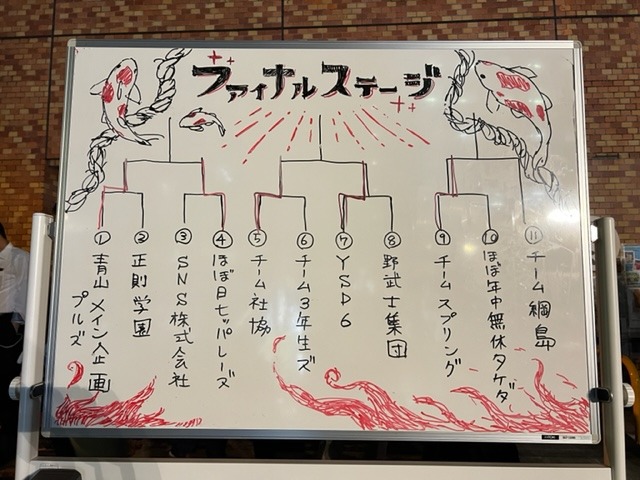 ファイナルステージ
① 青山メイン企画
プルズ
② 正則学園
③ SNS株式会社
④ ほぼ日ヒッパレーズ
⑤ チーム社協
⑥ チーム3年生ズ
⑦ YSD6
⑧ 野武士集団
⑨ チームスプリング
⑩ ほぼ年中無休タケダ
⑪ チーム綱島